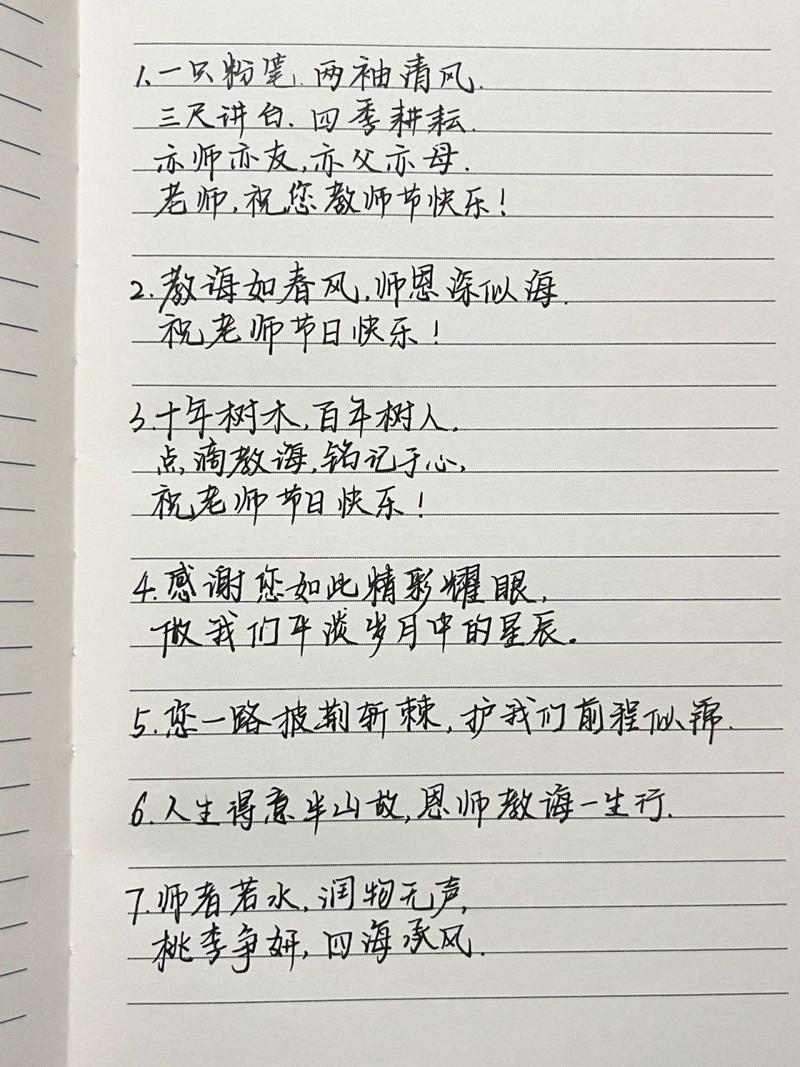 1.一只粉笔.两袖清风.
三尺讲台.四季耕耘.
亦师亦友,亦父亦母.
老师,祝您教师节快乐!
2.教诲如春风,师恩深似海.
祝老师节日快乐!
3.十年树木,百年树人.
点滴教诲,铭记于心,
祝老师节日快乐!
4.感谢您如此精彩耀眼,
做我们平淡岁月中的星辰。
5.您一路披荆斩棘,护我们前程似锦.
6.人生得意半山故,恩师教诲一生行.
7.师者若水,润物无声,
桃李争妍,四海承风.